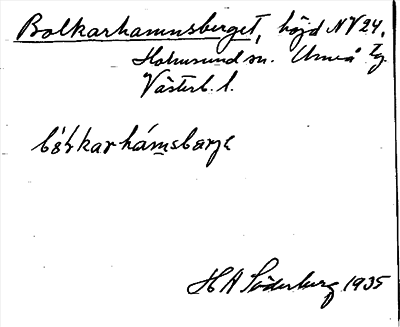 Bolkarhamnsberget, höjd NV 24,
Holmsund sn. Umeå Tg.
Västerb. l.
bólkarhámsbarjə
H A Söderberg 1935